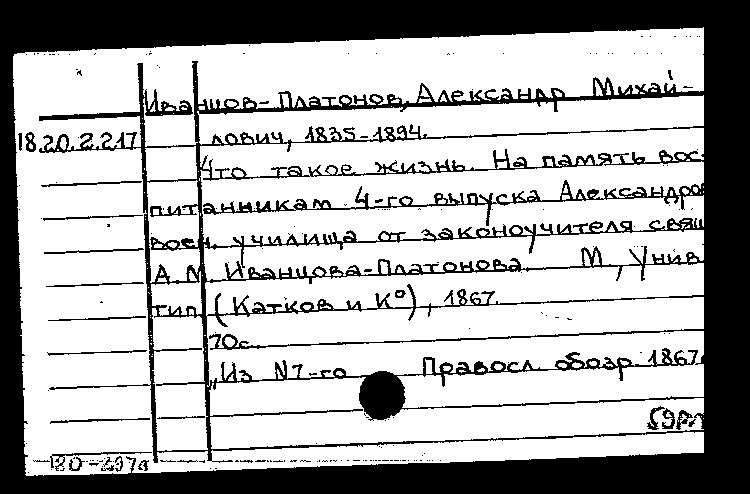 Иванцов-Платонов, Александр Михай-
18.20.2.217 лович, 1835-1894.
Что такое жизнь. На память вос-
питанникам 4-го выпуска Александров
воен. училища от законоучителя свящ
А.М. Иванцова-Платонова. М., Унив
тип. (Катков и К°), 1867.
70с.
„Из N7-го Правосл. обозр. 1867г